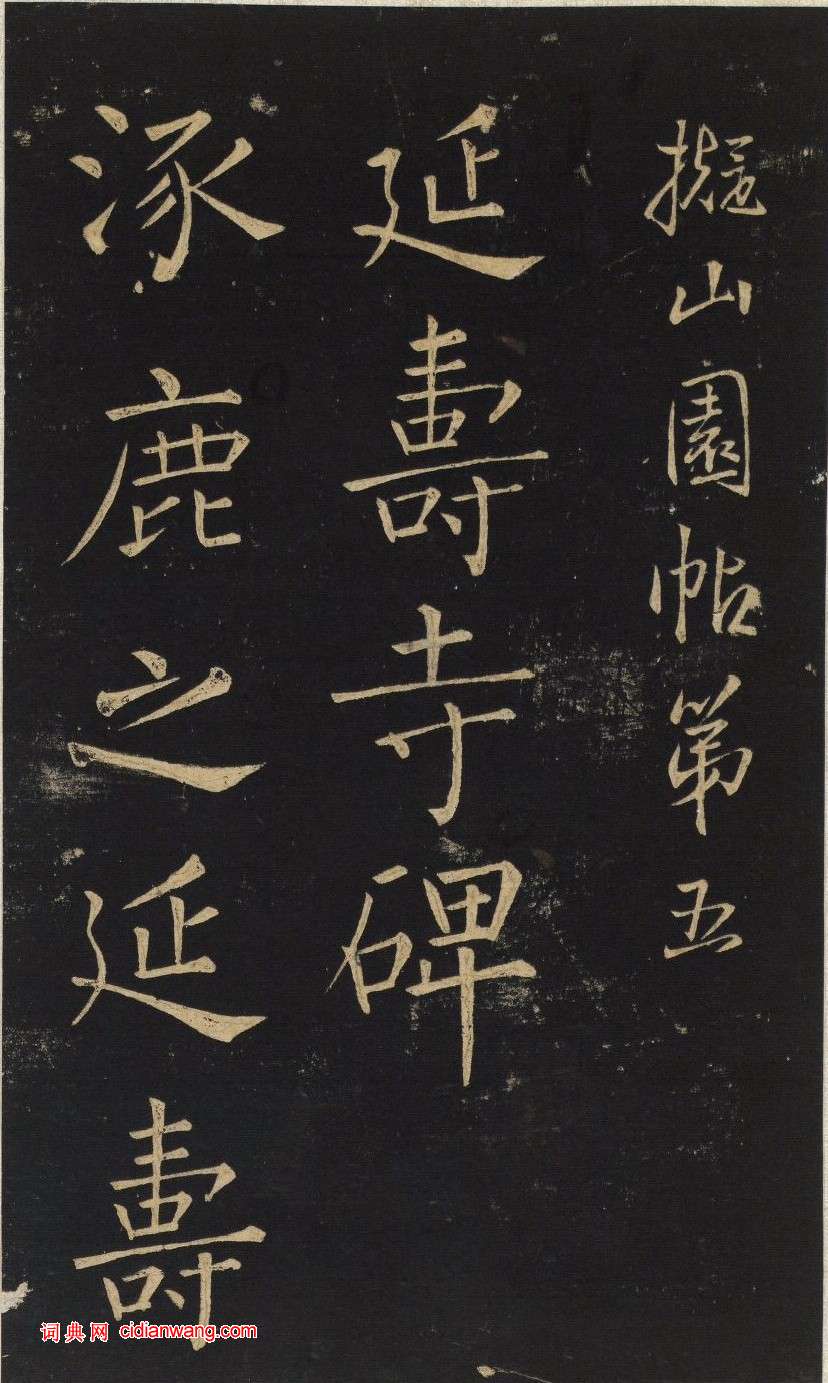 擬山園帖第五
延壽寺碑
涿鹿之延壽
词典网 cidianwang.com